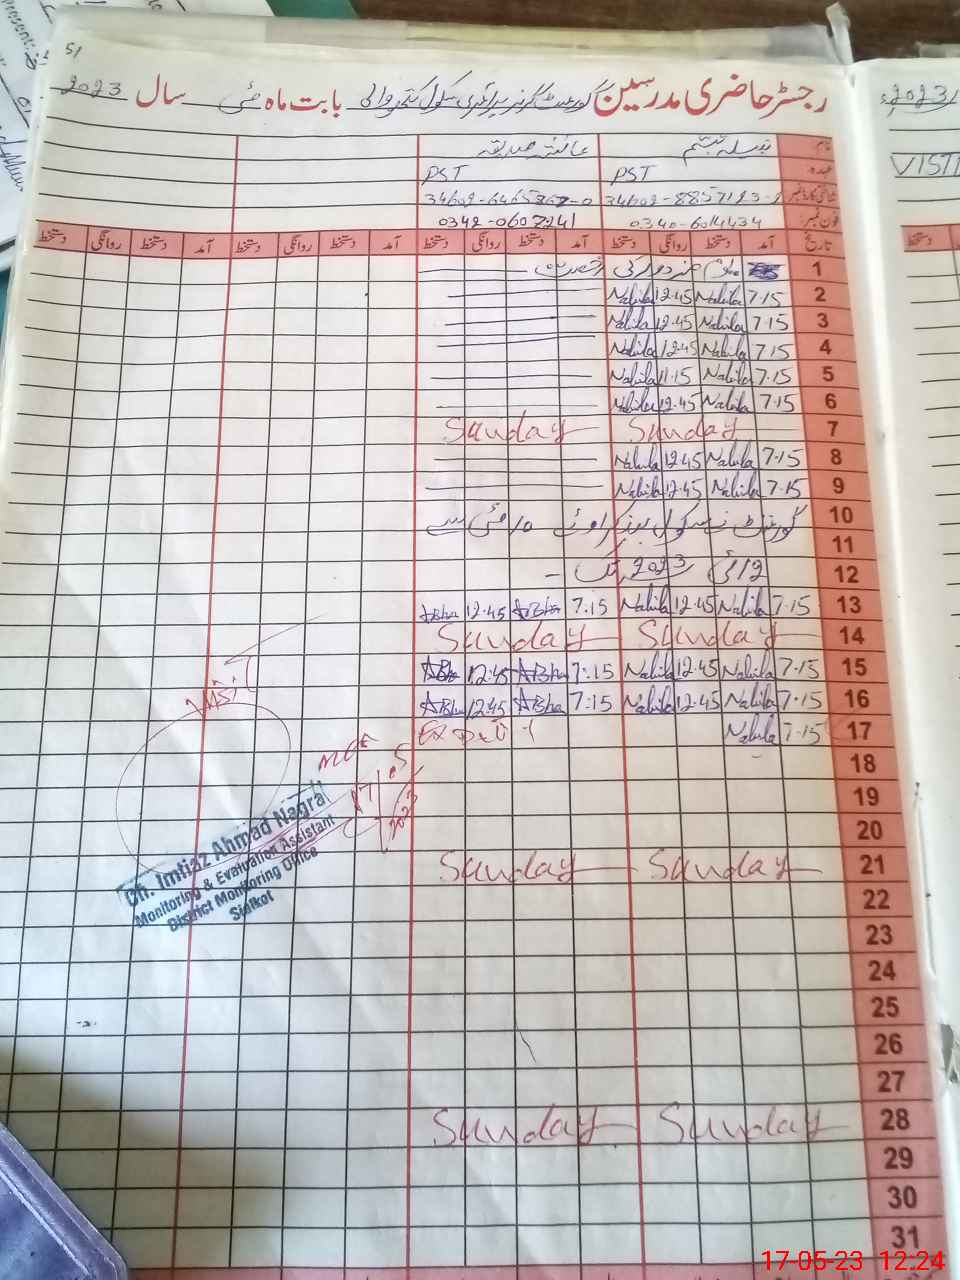 51
رجسٹر حاضری مدرسین گورنمنٹ گرلز پرائمری سکول بابت ماہ مئی سال 2023
2023
VISIT
نام نبیلہ تبسم عائشہ صدیقہ
عہدہ PST PST
شناختی کارڈ نمبر
فون نمبر 0342-0607241
تاریخ آمد دستخط روانگی دستخط آمد دستخط روانگی دستخط آمد دستخط روانگی دستخط آمد دستخط روانگی دستخط
1 یوم مزدور کی رخصت
2 7.15 Nabila 12.45 Nabila
3 7.15 Nabila 12.45 Nabila
4 7.15 Nabila 12.45 Nabila
5 7.15 Nabila 11.15 Nabila
6 7.15 Nabila 12.45 Nabila
7 Sunday Sunday
8 7.15 Nabila 12.45 Nabila
9 7.15 Nabila 12.45 Nabila
10 گورنمنٹ نے سکول بند کرائے 10 مئی سے
11
12 12 مئی 2023 تک
13 7.15 Nabila 12.45 Nabila 7.15 ABha 12.45 ABha
14 Sunday Sunday
15 7.15 Nabila 12.45 Nabila 7:15 ABha 12:45 ABha
16 7.15 Nabila 12.45 Nabila 7:15 ABha 12:45 ABha
17 7.15 Nabila
18
19
20
21 Sunday Sunday
22
23
24
25
26
27
28 Sunday Sunday
29
30
31
Visit
MEA
Ch. Imtiaz Ahmad Nagra
Monitoring & Evaluation Assistant
District Monitoring Office
Sialkot
17-05-23 12:24